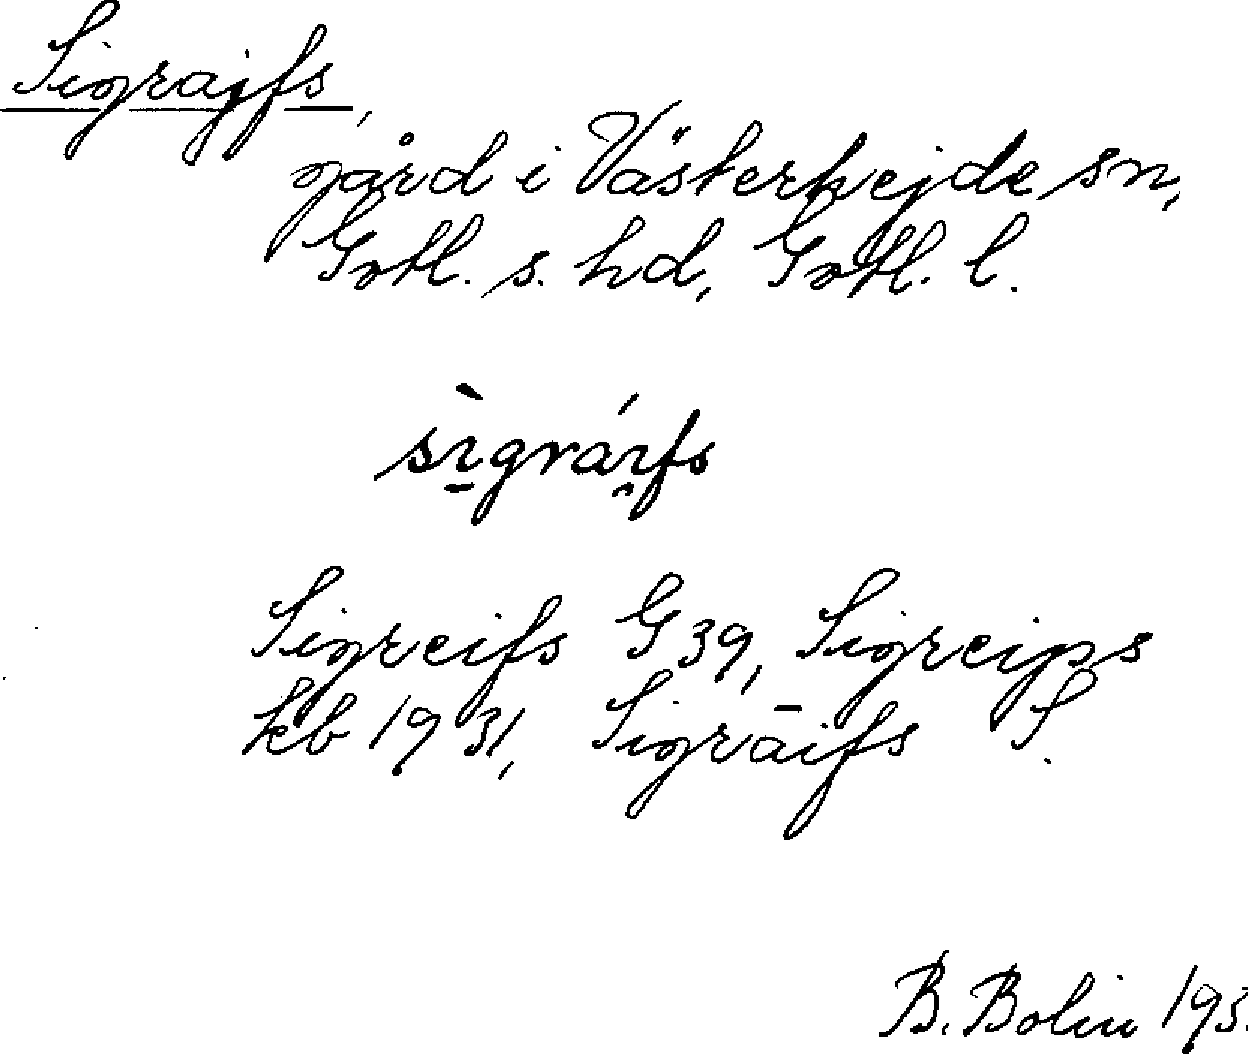 Sigrajfs,
gård i Västerhejde sn,
Gotl. s. hd, Gotl. l.
sìgráifs
Sigreifs G 39, Sigreips
kb 1931, Sigraifs S.
B. Bolin 193